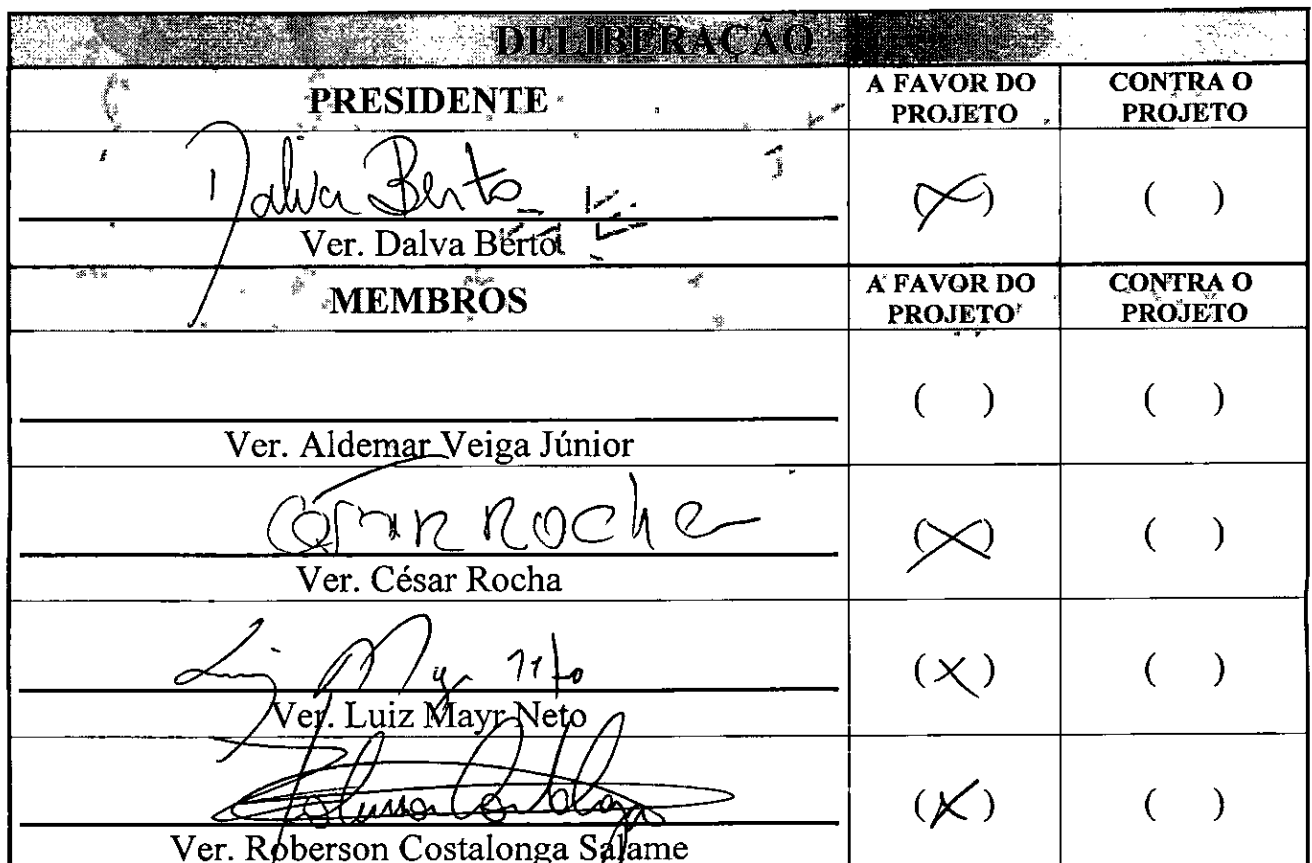 DELIBERAÇÃO
PRESIDENTE A FAVOR DO PROJETO CONTRA O PROJETO
Dalva Berto (X) ( )
Ver. Dalva Berto
MEMBROS A FAVOR DO PROJETO CONTRA O PROJETO
( ) ( )
Ver. Aldemar Veiga Júnior
César Rocha (X) ( )
Ver. César Rocha
Luiz Mayr Neto (X) ( )
Ver. Luiz Mayr Neto
(X) ( )
Ver. Roberson Costalonga Salame